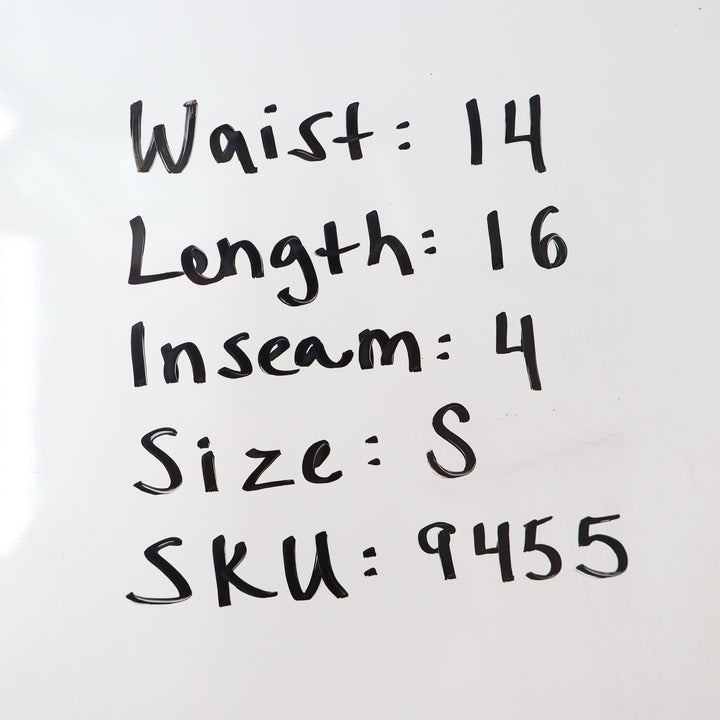 Waist: 14
Length: 16
Inseam: 4
Size: S
SKU: 9455